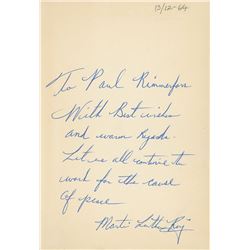 13/12-64
To Paul Rimmerfors
With Best wishes
and warm Regards.
Let us all continue to
work for the cause
of peace
Martin Luther King